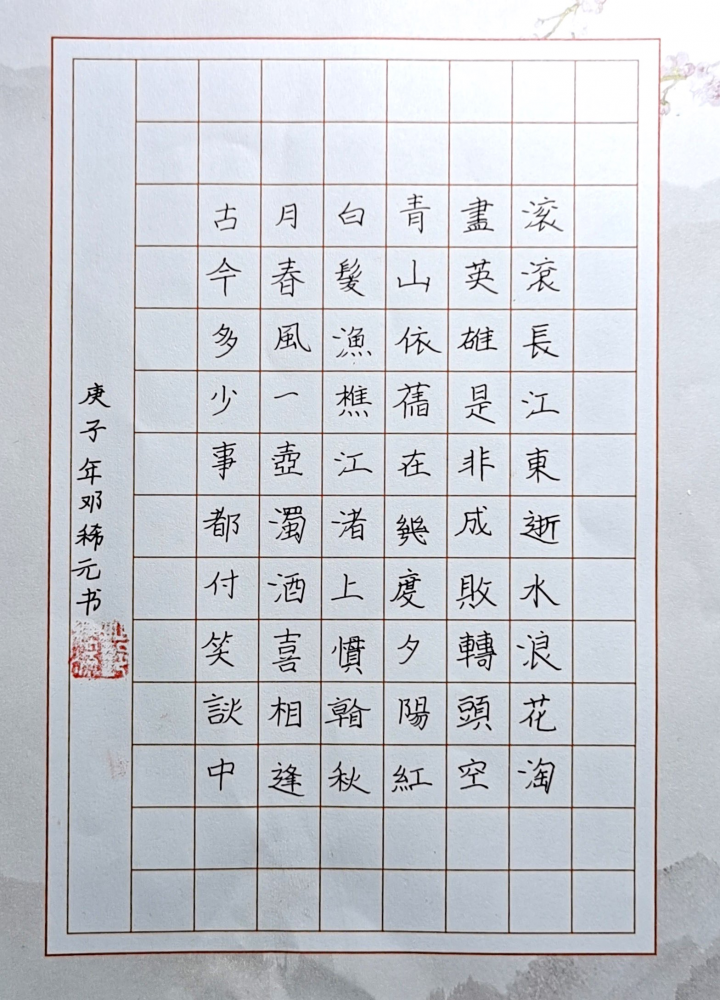 滚滾長江東逝水浪花淘
盡英雄是非成敗轉頭空
青山依舊在幾度夕陽紅
白髮漁樵江渚上慣看秋
月春風一壺濁酒喜相逢
古今多少事都付笑談中
庚子年邓稀元书